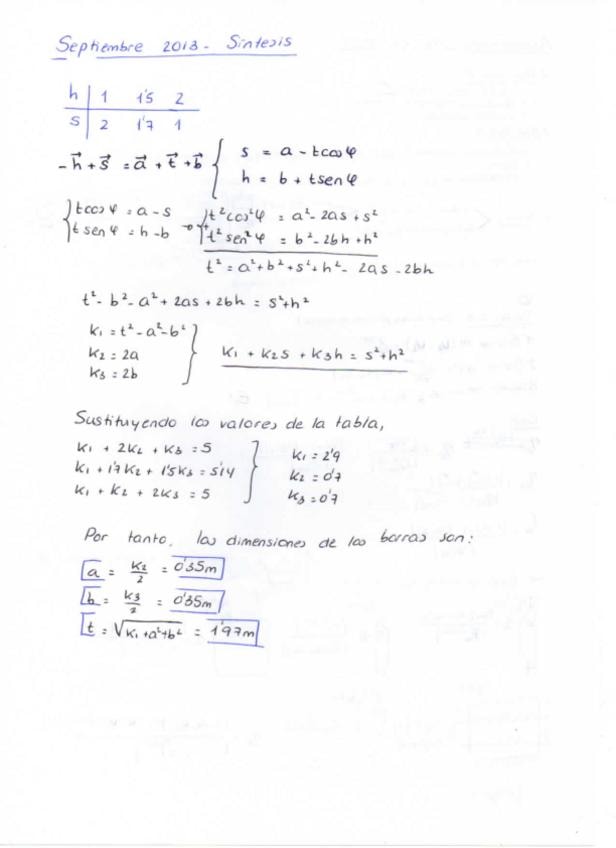 Septiembre 2013 - Síntesis
h | 1 1'5 2
s | 2 1'7 1
-h⃗ + s⃗ = a⃗ + t⃗ + b⃗ { s = a - tcosφ
h = b + tsenφ
{ tcosφ = a - s
t senφ = h - b
t²cos²φ = a² - 2as + s²
t²sen²φ = b² - 2bh + h²
t² = a² + b² + s² + h² - 2as - 2bh
t² - b² - a² + 2as + 2bh = s² + h²
K₁ = t² - a² - b²
K₂ = 2a
K₃ = 2b
K₁ + K₂s + K₃h = s² + h²
Sustituyendo los valores de la tabla,
K₁ + 2K₂ + K₃ = 5
K₁ + 1'7K₂ + 1'5K₃ = 5'14
K₁ + K₂ + 2K₃ = 5
K₁ = 2'9
K₂ = 0'7
K₃ = 0'7
Por tanto, las dimensiones de las barras son:
a = K₂/2 = 0'35m
b = K₃/2 = 0'35m
t = √(K₁ + a² + b²) = 1'97m